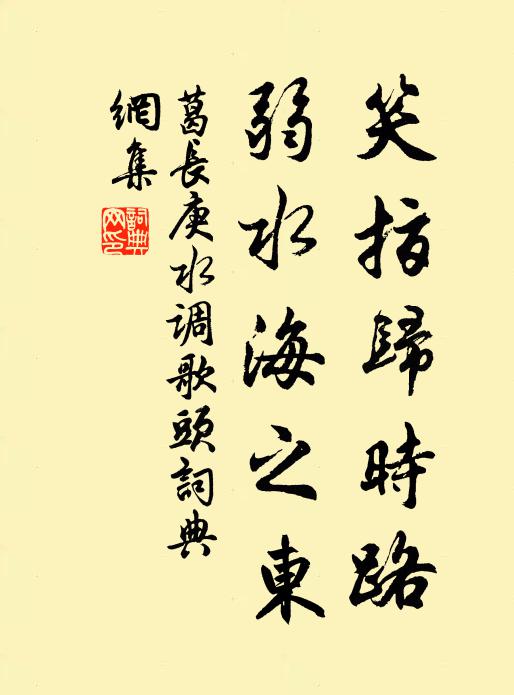 笑指歸時路
弱水海之東
葛長庚水调歌頭詞典
網集
詞典
网印